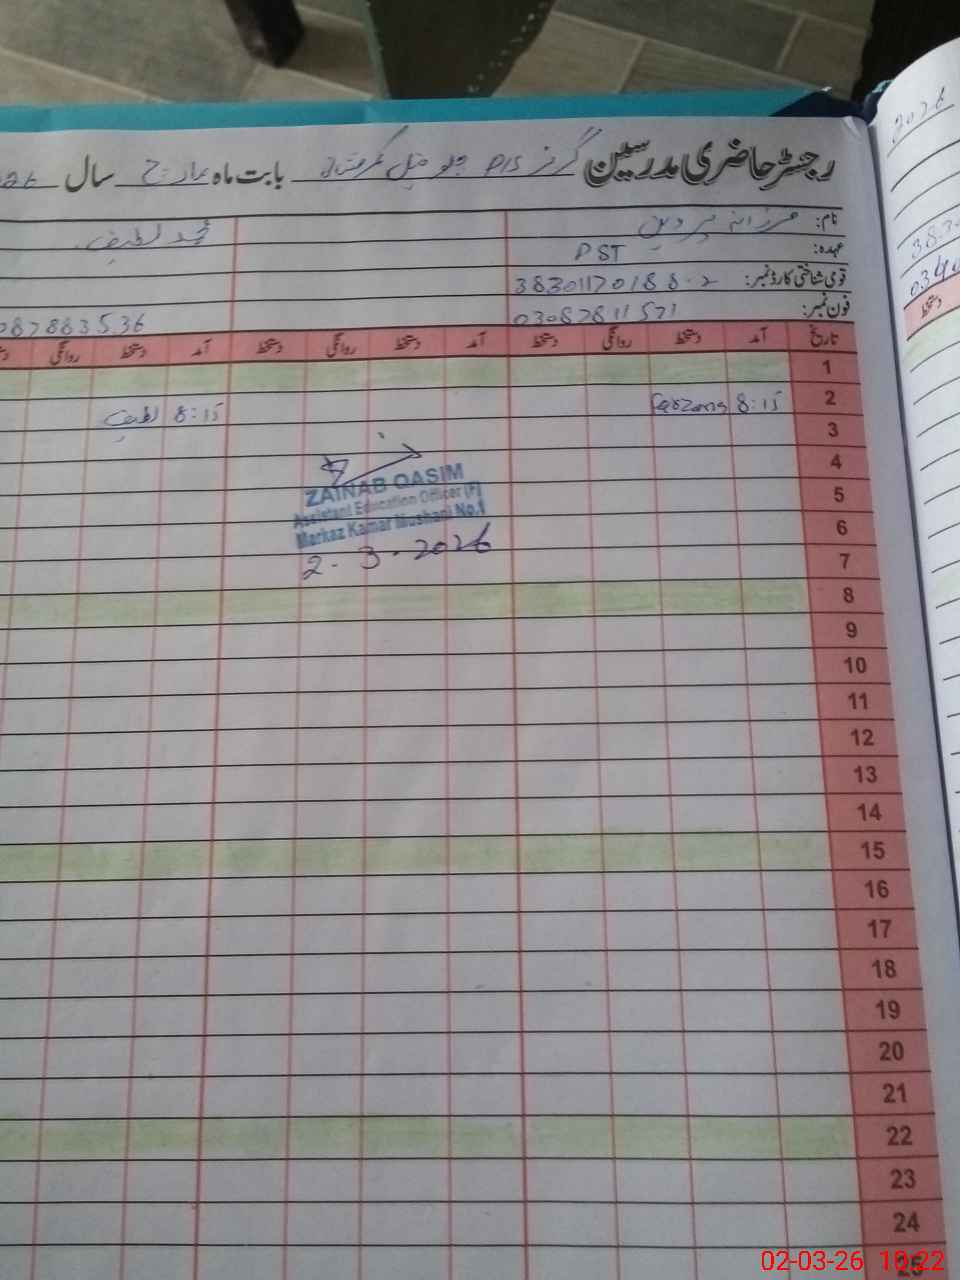 رجسٹر حاضری مدرسین گرلز P/S بابت ماہ مارچ سال
نام: فرزانہ پروین محمد لطیف
عہدہ: PST
قومی شناختی کارڈ نمبر: 38301170188-2
فون نمبر: 03087811571 0878835 36
تاریخ آمد دستخط روانگی دستخط آمد دستخط روانگی دستخط آمد دستخط روانگی
1
2 8:15 Farzana 8:15 لطیف
3
4
ZAINAB QASIM
5
Assistant Education Officer (F)
6
Markaz Kamar Mushani No.1
2-3-2026
7
8
9
10
11
12
13
14
15
16
17
18
19
20
21
22
23
24
25
2026
0340
دستخط
02-03-26 10:22